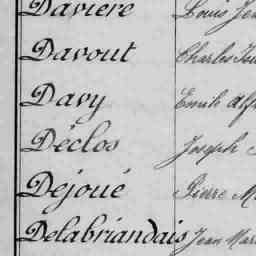 Daviere Louis
Davout Charles
Davy Emile
Déclos Joseph
Dejoué Pierre
Delabriandais Jean